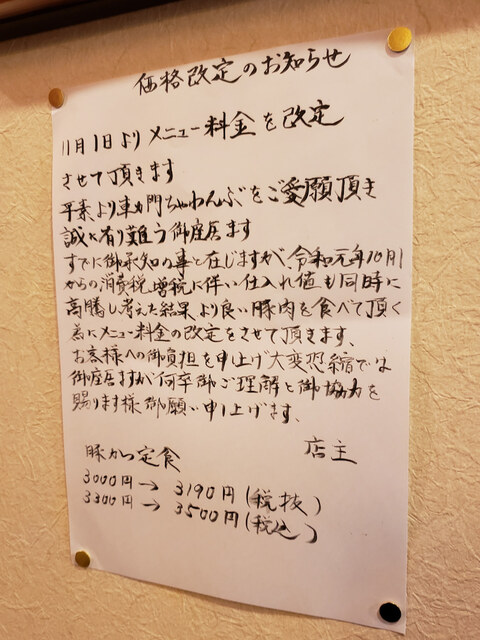 価格改定のお知らせ
11月1日よりメニュー料金を改定
させて頂きます
平素より車力門ちゃわんぶをご愛願頂き
誠に有り難う御座居ます
すでに御承知の事と存じますが、令和元年10月1
からの消費税増税に伴い仕入れ値も同時に
高騰し考えた結果より良い豚肉を食べて頂く
為にメニュー料金の改定をさせて頂きます、
お客様への御負担を申上げ大変恐縮では
御座居ますが何卒御ご理解と御協力を
賜ります様御願い申し上げます、
店主
豚かつ定食
3000円→3190円(税抜)
3300円→3500円(税込)